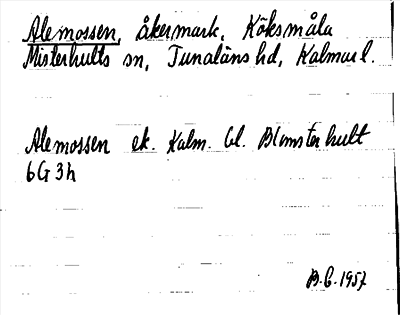 Alemossen, åkermark, Köksmåla
Misterhults sn, Tunaläns hd, Kalmar l.
Alemossen ek. Kalm. bl. Blomsterhult
6G3h
B.C. 1957